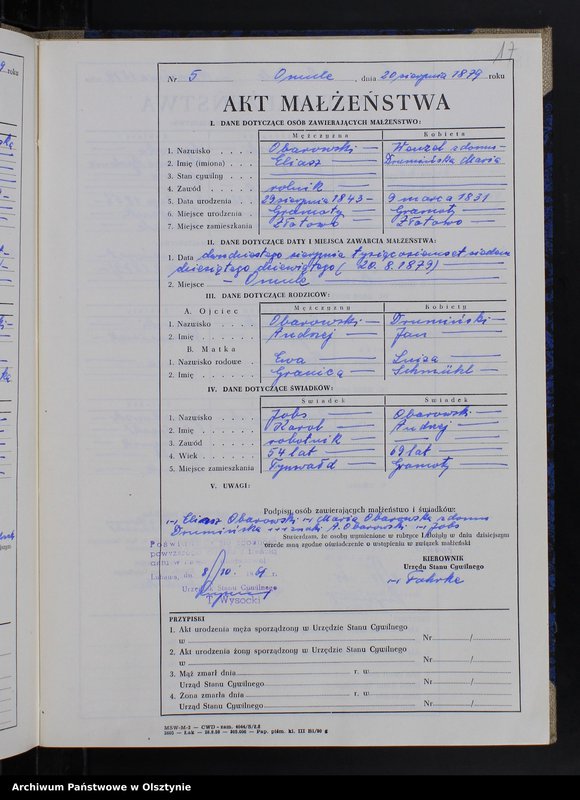 17
Nr 5 Omule, dnia 20 sierpnia 1879 roku
AKT MAŁŻEŃSTWA
I. DANE DOTYCZĄCE OSÓB ZAWIERAJĄCYCH MAŁŻEŃSTWO:
Mężczyzna Kobieta
1. Nazwisko Obarowski — Wenzel z domu —
2. Imię (imiona) Eliasz Drumińska Maria
3. Stan cywilny
4. Zawód rolnik
5. Data urodzenia 29 sierpnia 1843 — 9 marca 1831
6. Miejsce urodzenia Gramoty Gramoty
7. Miejsce zamieszkania Złotowo Złotowo
II. DANE DOTYCZĄCE DATY I MIEJSCA ZAWARCIA MAŁŻEŃSTWA:
1. Data dwudziestego sierpnia tysiąc osiemset siedem
dziesiątego dziewiątego (20.8.1879)
2. Miejsce — Omule
III. DANE DOTYCZĄCE RODZICÓW:
Mężczyzny Kobiety
A. Ojciec
1. Nazwisko Obarowski — Drumiński —
2. Imię Andrzej Jan
B. Matka
1. Nazwisko rodowe Ewa Luiza
2. Imię Granica Schmükl —
IV. DANE DOTYCZĄCE ŚWIADKÓW:
Świadek Świadek
1. Nazwisko Jobs Obarowski
2. Imię Karol Andrzej
3. Zawód robotnik
4. Wiek 54 lat 69 lat
5. Miejsce zamieszkania Tynwałd Gramoty
V. UWAGI:
Podpisy osób zawierających małżeństwo i świadków:
Eliasz Obarowski Maria Obarowska z domu
Drumińska +++ znaki A. Obarowski Jobs
Stwierdzam, że osoby wymienione w rubryce I złożyły w dniu dzisiejszym
przede mną zgodne oświadczenie o wstąpieniu w związek małżeński
KIEROWNIK
Urzędu Stanu Cywilnego
Lubawa, dn. 8/10.
Urzędnik Stanu Cywilnego
T. Wysocki
PRZYPISKI
1. Akt urodzenia męża sporządzony w Urzędzie Stanu Cywilnego
w Nr /
2. Akt urodzenia żony sporządzony w Urzędzie Stanu Cywilnego
w Nr /
3. Mąż zmarł dnia r. w
Urząd Stanu Cywilnego Nr /
4. Żona zmarła dnia r. w
Urząd Stanu Cywilnego Nr /
Archiwum Państwowe w Olsztynie